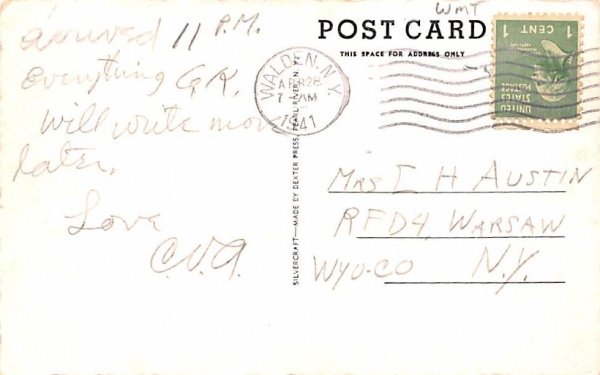 arrived 11 P.M.
Everything O.K.
Will write more
later.
Love
C.V.A.
WMT
POST CARD
THIS SPACE FOR ADDRESS ONLY
WALDEN, N.Y.
APR 28
7 AM
1941
1 CENT 1
UNITED
STATES
POSTAGE
SILVERCRAFT—MADE BY DEXTER PRESS, PEARL RIVER, N.Y.
MRS H AUSTIN
RFD4, WARSAW
WYO-CO N.Y.